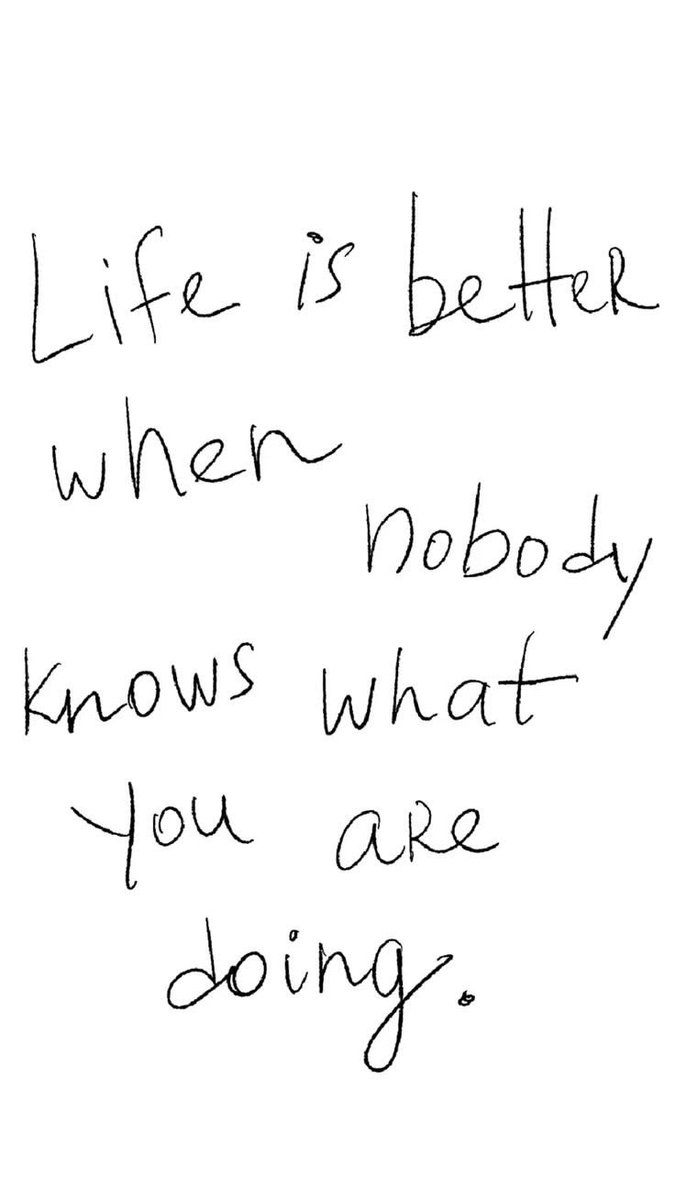 Life is better
when
nobody
knows what
you are
doing.